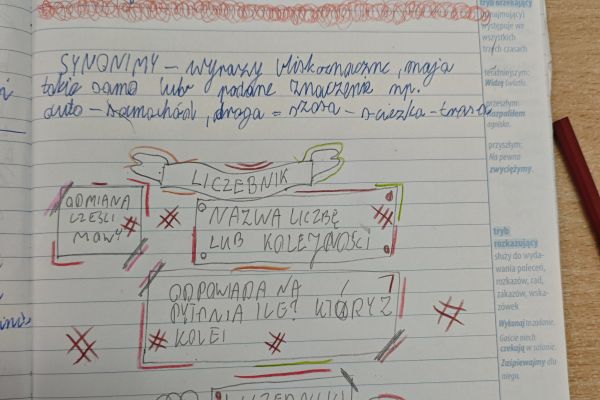 SYNONIMY – wyrazy bliskoznaczne, mają
takie samo lub podobne znaczenie np.
auto – samochód, droga = szosa – ścieżka – trasa
LICZEBNIK
ODMIANA
CZĘŚCI
MOWY
NAZWA LICZBĘ
LUB KOLEJNOŚCI
ODPOWIADA NA
PYTANIA ILE? KTÓRY Z
KOLEI
LICZEBNIKI
tryb orzekający
oznajmujący)
występuje we
wszystkich
trzech czasach
teraźniejszym:
Widzę światło.
przeszłym:
Rozpaliłem
ognisko.
przyszłym:
Na pewno
zwyciężymy.
tryb
rozkazujący
służy do wyda-
wania poleceń,
rozkazów, rad,
zakazów, wska-
zówek
Wykonaj to zadanie.
Goście niech
czekają w salonie.
Zaśpiewajmy dla
niego.